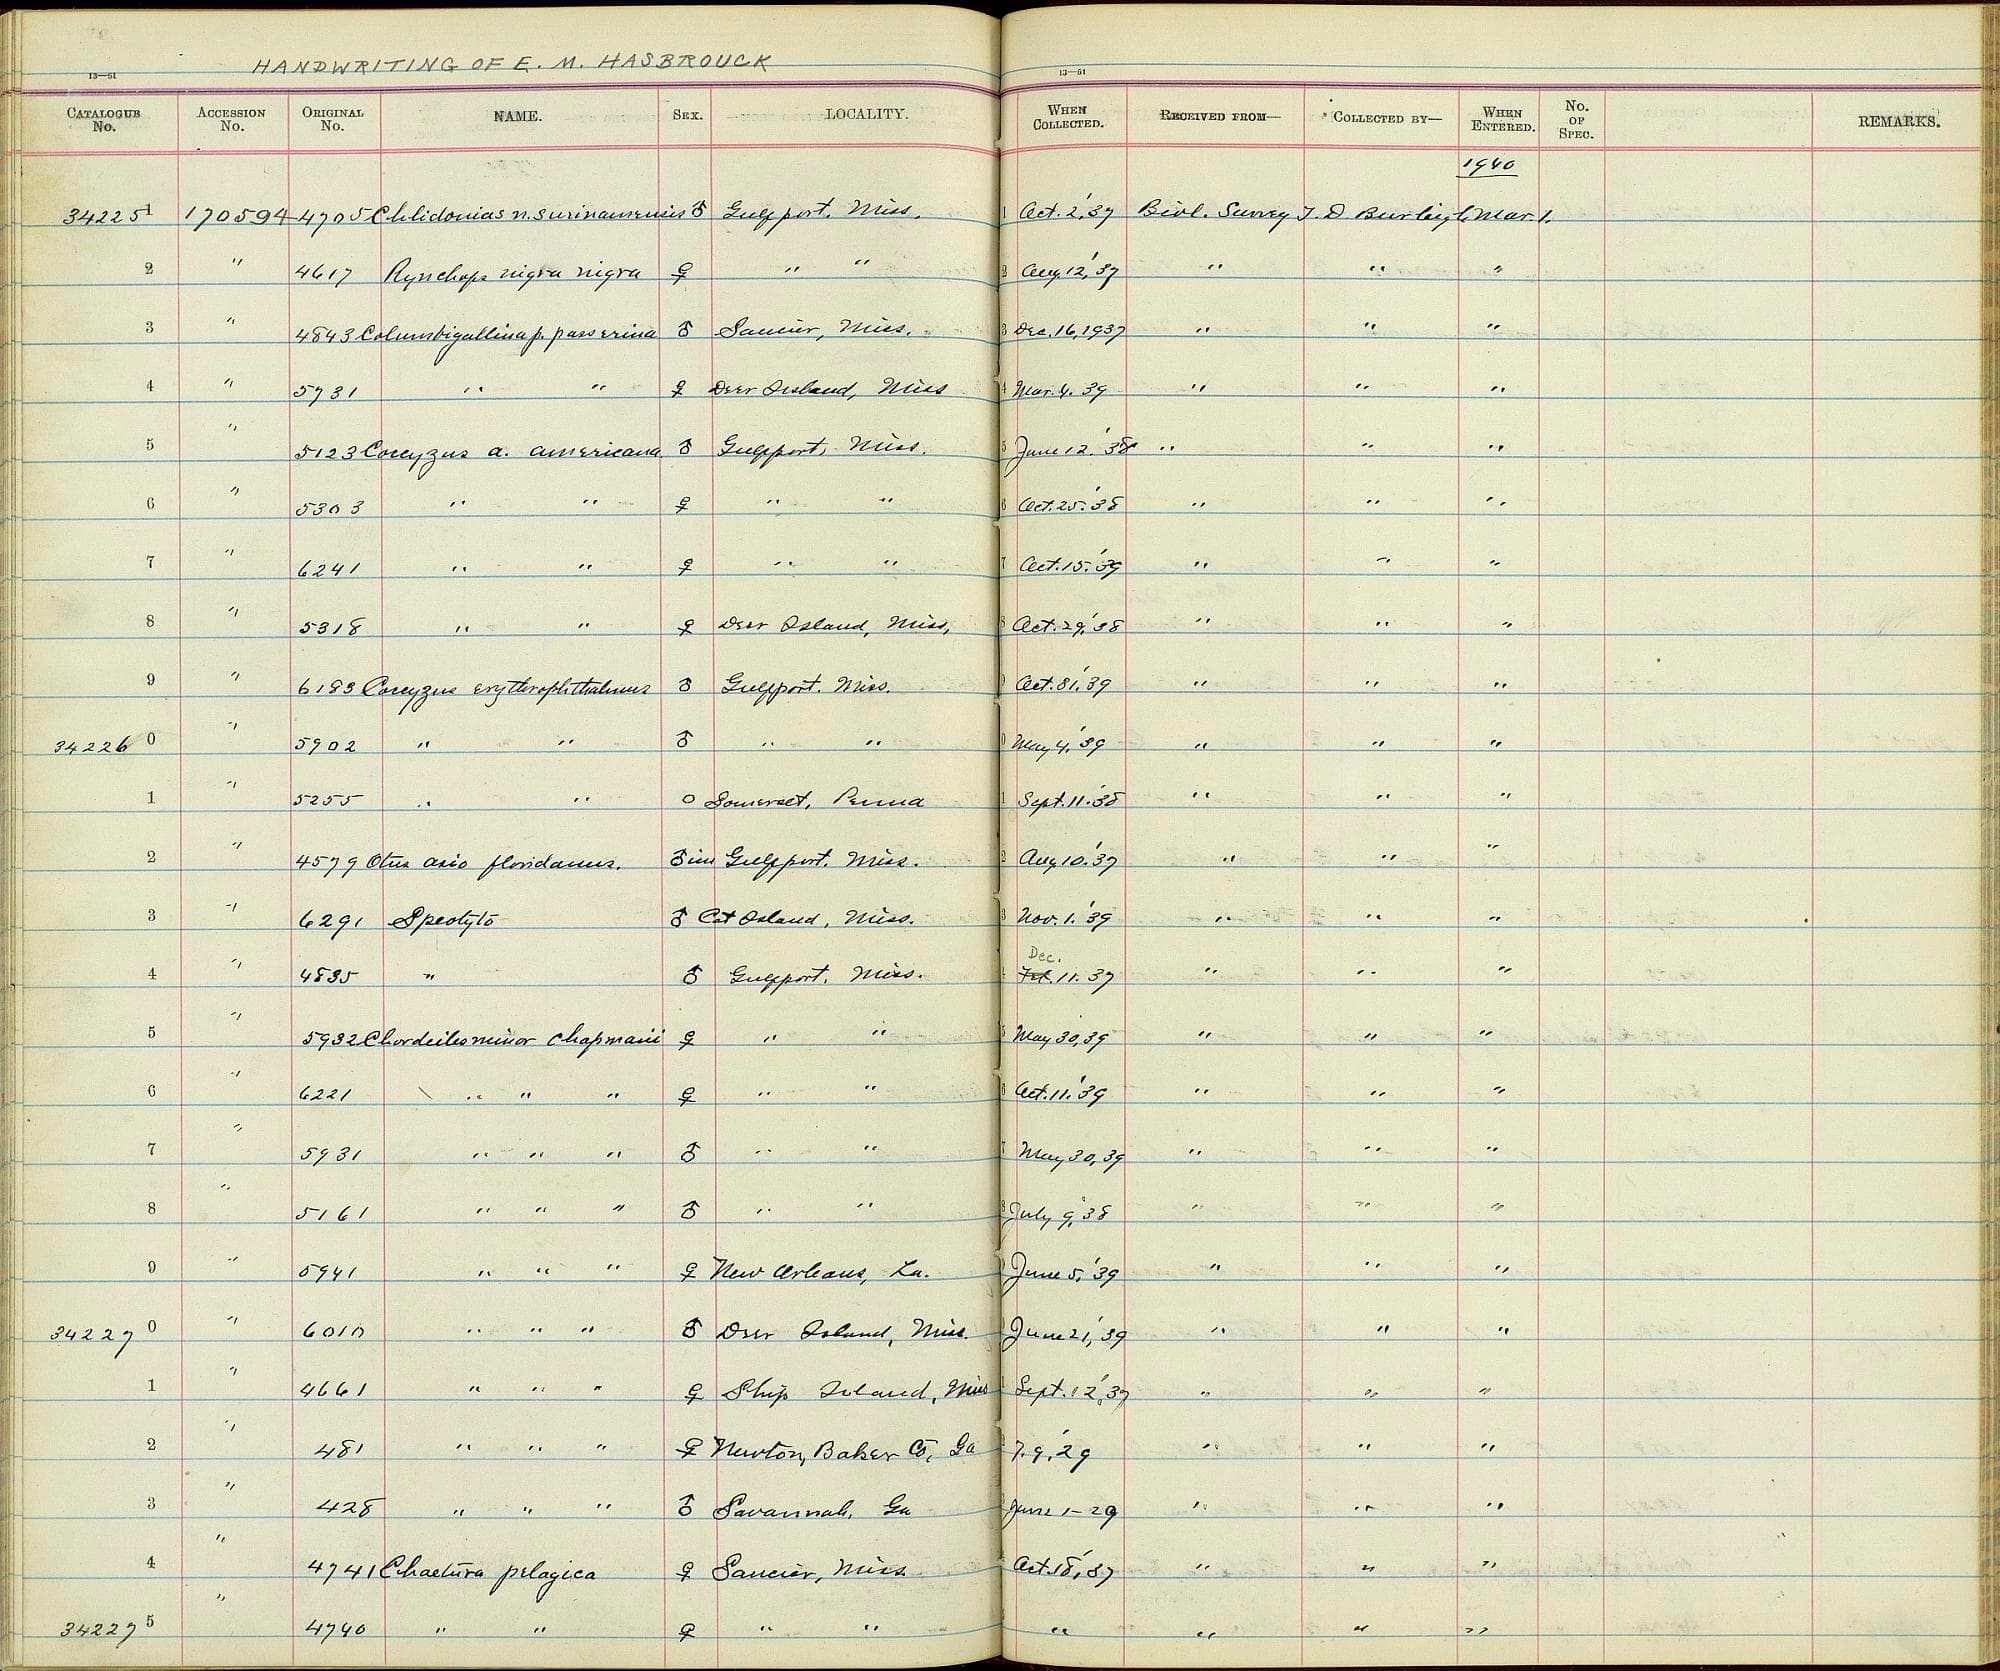 HANDWRITING OF E. M. HASBROUCK
13—51 13—51
CATALOGUE No. ACCESSION No. ORIGINAL No. NAME. SEX. LOCALITY. WHEN COLLECTED. RECEIVED FROM— COLLECTED BY— WHEN ENTERED. No. OF SPEC. REMARKS.
1940
342251 170594 4705 Chlidonias n. surinamensis ♂ Gulfport, Miss. 1 Oct. 2,'37 Biol. Survey T. D. Burleigh Mar. 1.
2 " 4617 Rynchops nigra nigra ♀ " " 2 Aug. 12,'37 " " "
3 " 4843 Columbigallina p. passerina ♂ Saucier, Miss. 3 Dec. 16, 1937 " " "
4 " 5731 " " ♀ Deer Island, Miss 4 Mar. 4. 39 " " "
5 " 5123 Coccyzus a. americana ♂ Gulfport, Miss. 5 June 12.'38 " " "
6 " 5303 " " ♀ " " 6 Oct. 25.'38 " " "
7 " 6241 " " ♀ " " 7 Oct. 15.'39 " " "
8 " 5318 " " ♀ Deer Island, Miss, 8 Oct. 29,'38 " " "
9 " 6183 Coccyzus erythrophthalmus ♂ Gulfport. Miss. 9 Oct. 81.'39 " " "
342260 " 5902 " " ♂ " " 0 May 4,'39 " " "
1 " 5255 " " O Somerset, Penna 1 Sept. 11.'38 " " "
2 " 4579 Otus asio floridanus. ♂ im Gulfport. Miss. 2 Aug 10.'37 " " "
3 " 6291 Speotyto ♂ Cat Island, Miss. 3 Nov. 1.'39 " " "
Dec.
4 " 4835 " ♂ Gulfport, Miss. 11. 37 " " "
5 " 5932 Chordeiles minor chapmani ♀ " " 5 May 30, 39 " " "
6 " 6221 " " " ♀ " " 6 Oct. 11.'39 " " "
7 " 5931 " " " ♂ " " 7 May 30, 39 " " "
8 " 5161 " " " ♂ " " 8 July 9,'38 " " "
9 " 5941 " " " ♀ New Orleans, La. June 5,'39 " " "
342270 " 6010 " " " ♂ Deer Island, Miss. June 21,'39 " " "
1 " 4661 " " " ♀ Ship Island, Miss Sept. 12,'37 " " "
2 " 481 " " " ♀ Newton, Baker Co, Ga 7. 9.'29 " " "
3 " 428 " " " ♂ Savannah, Ga June 1-29 " " "
4 " 4741 Chaetura pelagica ♀ Saucier, Miss. Oct. 18,'37 " " "
342275 " 4740 " " ♀ " " " " " "